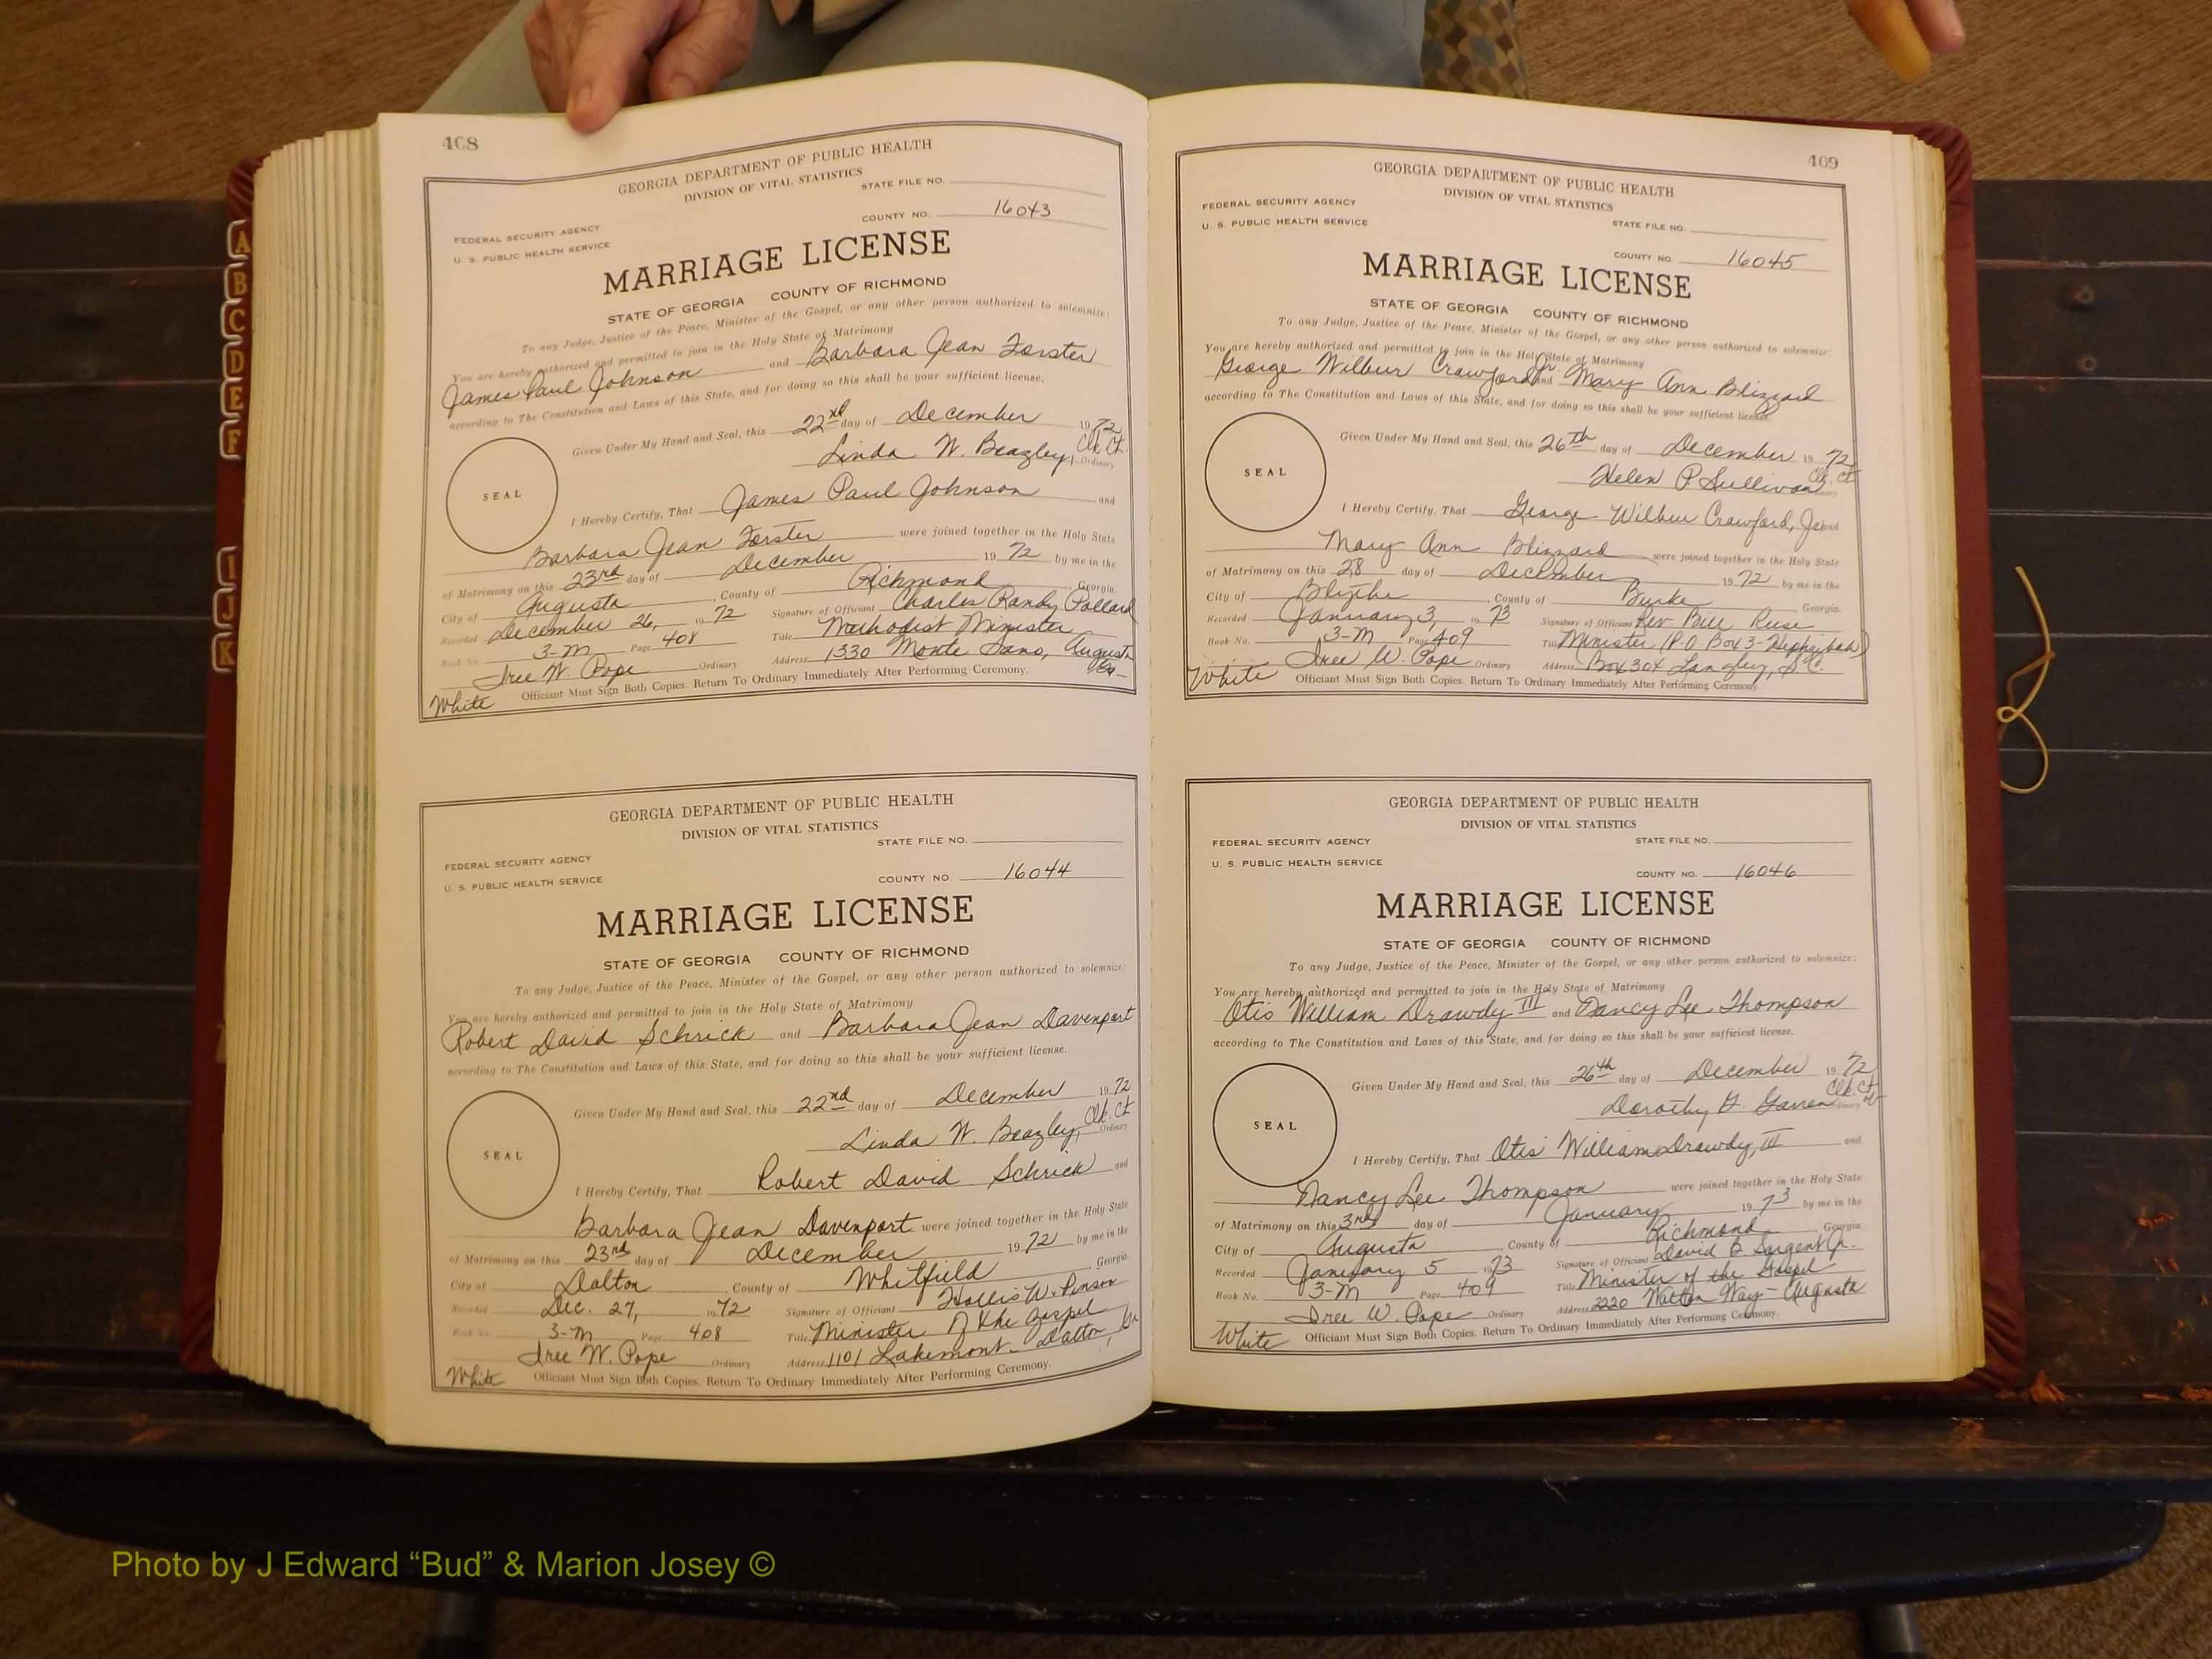 408
GEORGIA DEPARTMENT OF PUBLIC HEALTH
DIVISION OF VITAL STATISTICS
STATE FILE NO.
COUNTY NO. 16043
FEDERAL SECURITY AGENCY
U. S. PUBLIC HEALTH SERVICE
MARRIAGE LICENSE
STATE OF GEORGIA COUNTY OF RICHMOND
To any Judge, Justice of the Peace, Minister of the Gospel, or any other person authorized to solemnize:
You are hereby authorized and permitted to join in the Holy State of Matrimony
James Paul Johnson and Barbara Jean Forster
according to The Constitution and Laws of this State, and for doing so this shall be your sufficient license.
Given Under My Hand and Seal, this 22nd day of December 1972
Linda W. Beazley, Clk. Ct. Ordinary
SEAL
I Hereby Certify, That James Paul Johnson and
Barbara Jean Forster were joined together in the Holy State
of Matrimony on this 23rd day of December 1972 by me in the
City of Augusta, County of Richmond, Georgia.
Recorded December 26, 1972 Signature of Officiant Charles Randy Pollard
Book No. 3-M Page 408 Title Methodist Minister
Iree W. Pope Ordinary Address 1330 Monte Sano, Augusta Ga-
White Officiant Must Sign Both Copies. Return To Ordinary Immediately After Performing Ceremony.
GEORGIA DEPARTMENT OF PUBLIC HEALTH
DIVISION OF VITAL STATISTICS
STATE FILE NO.
FEDERAL SECURITY AGENCY
U. S. PUBLIC HEALTH SERVICE
COUNTY NO. 16044
MARRIAGE LICENSE
STATE OF GEORGIA COUNTY OF RICHMOND
To any Judge, Justice of the Peace, Minister of the Gospel, or any other person authorized to solemnize:
You are hereby authorized and permitted to join in the Holy State of Matrimony
Robert David Schrick and Barbara Jean Davenport
according to The Constitution and Laws of this State, and for doing so this shall be your sufficient license.
Given Under My Hand and Seal, this 22nd day of December 1972
Linda W. Beazley, Clk. Ct. Ordinary
SEAL
I Hereby Certify, That Robert David Schrick and
Barbara Jean Davenport were joined together in the Holy State
of Matrimony on this 23rd day of December 1972 by me in the
City of Dalton, County of Whitfield Georgia.
Recorded Dec. 27, 1972 Signature of Officiant Hollis W. Pinson
Book No. 3-M Page 408 Title Minister of the Gospel
Iree W. Pope Ordinary Address 1101 Lakemont- Dalton, Ga
White Officiant Must Sign Both Copies. Return To Ordinary Immediately After Performing Ceremony.
409
GEORGIA DEPARTMENT OF PUBLIC HEALTH
DIVISION OF VITAL STATISTICS
FEDERAL SECURITY AGENCY
U. S. PUBLIC HEALTH SERVICE
STATE FILE NO.
COUNTY NO 16045
MARRIAGE LICENSE
STATE OF GEORGIA COUNTY OF RICHMOND
To any Judge, Justice of the Peace, Minister of the Gospel, or any other person authorized to solemnize:
You are hereby authorized and permitted to join in the Holy State of Matrimony
George Wilbur Crawford Jr. and Mary Ann Blizzard
according to The Constitution and Laws of this State, and for doing so this shall be your sufficient license.
Given Under My Hand and Seal, this 26th day of December 1972
Helen P. Sullivan Clk. Ct. Ordinary
SEAL
I Hereby Certify, That George Wilbur Crawford, Jr. and
Mary Ann Blizzard were joined together in the Holy State
of Matrimony on this 28 day of December 1972 by me in the
City of Blythe, County of Burke Georgia.
Recorded January 3, 1973 Signature of Officiant Rev. Bill Ruse
Book No. 3-M Page 409 Title Minister (P.O. Box 3-Hephzibah)
Iree W. Pope Ordinary Address Box 304 Langley, S.C.
White Officiant Must Sign Both Copies. Return To Ordinary Immediately After Performing Ceremony.
GEORGIA DEPARTMENT OF PUBLIC HEALTH
DIVISION OF VITAL STATISTICS
FEDERAL SECURITY AGENCY
STATE FILE NO.
U. S. PUBLIC HEALTH SERVICE
COUNTY NO. 16046
MARRIAGE LICENSE
STATE OF GEORGIA COUNTY OF RICHMOND
To any Judge, Justice of the Peace, Minister of the Gospel, or any other person authorized to solemnize:
You are hereby authorized and permitted to join in the Holy State of Matrimony
Otis William Drawdy III and Nancy Lee Thompson
according to The Constitution and Laws of this State, and for doing so this shall be your sufficient license.
Given Under My Hand and Seal, this 26th day of December 1972
Dorothy G. Clk. Ct. Ordinary
SEAL
I Hereby Certify, That Otis William Drawdy, III and
Nancy Lee Thompson were joined together in the Holy State
of Matrimony on this 3rd day of January 1973 by me in the
City of Augusta, County of Richmond Georgia
Recorded January 5 1973 Signature of Officiant David B Sargent Jr.
Book No. 3-M Page 409 Title Minister of the Gospel
Iree W. Pope Ordinary Address 2220 Walton Way- Augusta
White Officiant Must Sign Both Copies. Return To Ordinary Immediately After Performing Ceremony.
A
B
C
D
E
F
I
J
K
Photo by J Edward “Bud” & Marion Josey ©